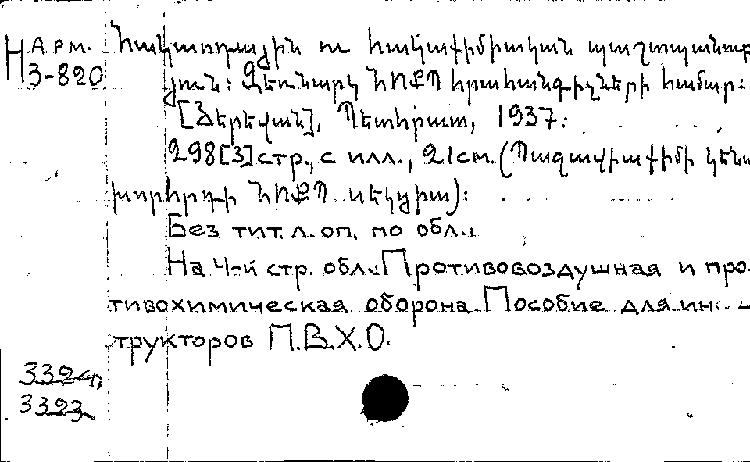 Н АРМ.
3-820
Հակաօդային ու հակաքիմիական պաշտպանութ
յուն: Ձեռնարկ հրահանգիչների համար:
[Յերեվան], Պետհրատ, 1937:
298[3]стр., с илл., 21см. (
խորհրդի
Без тит. л. оп. по обл.
На 4-й стр. обл.: Противовоздушная и про-
тивохимическая оборона. Пособие для инс-
трукторов П.В.Х.О.
3324
3323